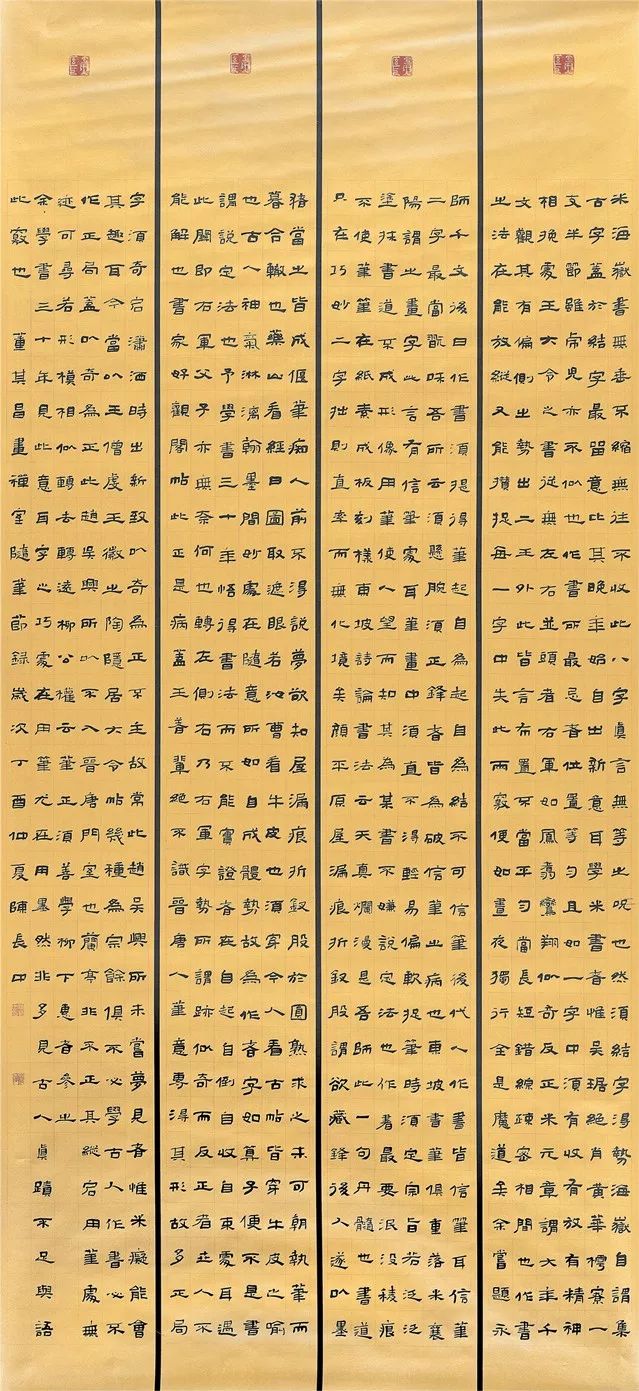 米海嶽書無垂不縮無往不收此八字真言無等之呪也然須結字得勢海嶽自謂集
古字蓋於結字最留意比其晚年始自出新意耳學米書者惟吳琚絕肖黃華樗寮一
支半節雖虎兒亦不似也作書所最忌者位置等勻且如一字中須有收有放有精神
相挽處王大令之書從無左右並頭者右軍如鳳翥鸞翔似奇反正米元章謂大年千
文觀其有偏側之勢出二王外此皆言布置不當平勻當長短錯綜疎密相間也作書
之法在能放縱又能攢捉每一字中失此兩竅便如晝夜獨行全是魔道矣余嘗題永
師千文後曰作書須提得筆起自為起自為結不可信筆後代人作書皆信筆耳信筆
二字最當翫味吾所云須懸腕須正鋒者皆為破信筆之病也東坡書筆俱重落米襄
陽謂之畫字此言有信筆處耳筆畫中須直不得輕易偏軟捉筆時須定宗旨若泛泛
塗抹書道不成形像用筆使人望而知其為某書不嫌說定法也作書最要泯沒稜痕
不使筆筆在紙素成板刻樣東坡詩論書法云天真爛漫是吾師此一句丹髓也書道
只在巧妙二字拙則直率而無化境矣顏平原屋漏痕折釵股謂欲藏鋒後人遂以墨
豬當之皆成偃筆痴人前不得說夢欲知屋漏痕折釵股於圓熟求之未可朝執筆而
暮合轍也藥山看經曰圖取遮眼若汝曹看牛皮也須穿今人看古帖皆穿牛皮之喻
也古人神氣淋漓翰墨間妙處在隨意所如自成體勢故為作者字如算子便不是書
謂說定法也予學書三十年悟得書法而不能實證者在自起自倒自收自束處耳過
此關即右軍父子亦無奈何也轉左側右乃右軍字勢所謂跡似奇而反正者世人不
能解也書家好觀閣帖此正是病蓋王著輩絕不識晉唐人筆意專得其形故多正局
字須奇宕瀟洒時出新致以奇為正不主故常此趙吳興所未嘗夢見者惟米癡能會
其趣耳今當以王僧虔王徽之陶隱居大令帖幾種為宗餘俱不必學古人作書必不
作正局蓋以奇為正此趙吳興所以不入晉唐門室也蘭亭非不正其縱宕用筆處無
迹可尋若形模相似轉去轉遠柳公權云筆正須善學柳下惠者參之
余學書三十年見此意耳字之巧處在用筆尤在用墨然非多見古人真蹟不足與語
此竅也 董其昌畫禪室隨筆節錄歲次丁酉仲夏陳長中